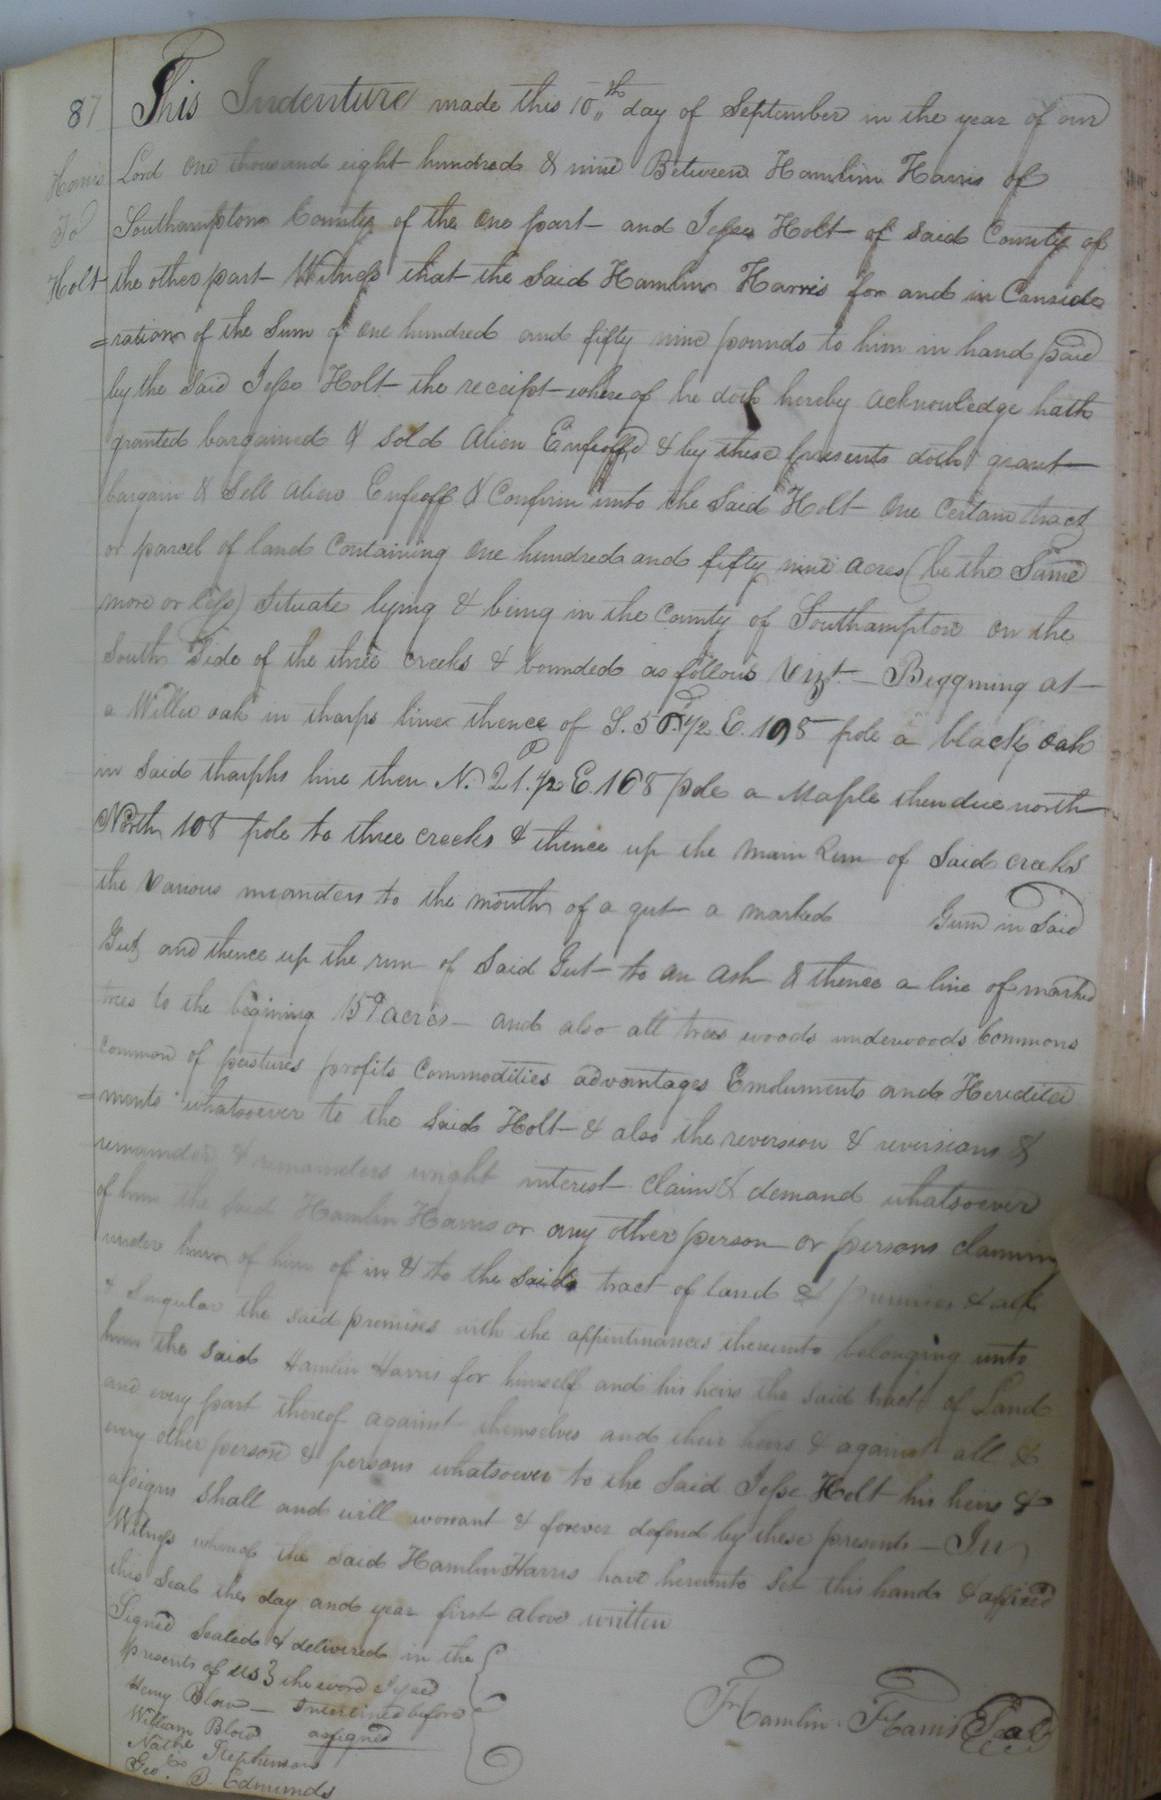 87
Harris
To
Holt
This Indenture made this 10th day of September in the year of our
Lord one thousand eight hundred & nine Between Hamlin Harris of
Southampton County of the one part and Jesse Holt of said County of
the other part Witness that the said Hamlin Harris for and in Conside
=ration of the Sum of one hundred and fifty nine pounds to him in hand paid
by the said Jesse Holt the receipt whereof he doth hereby acknowledge hath
granted bargained & sold Alien Enfeoffd & by these presents doth grant
bargain & Sell alien Enfeoff & Confirm unto the Said Holt One Certain tract
or parcel of land Containing one hundred and fifty nine acres (be the Same
more or less) Situate lying & being in the County of Southampton on the
South Side of the three creeks & bounded as follows Vizt. Beggining at
a Willer oak in tharps line thence of S. 50. 1/2 E. 198 pole a black oak
in said tharphs line then N. 21. 1/2 E. 168 pole a Maple then due north
North 108 pole to three creeks & thence up the main Run of Said creeks
the Various meanders to the mouth of a gut a marked Gum in Said
Gut and thence up the run of Said Gut to an ash & thence a line of marked
trees to the begining 159 acres and also all trees woods underwoods Commons
Common of pastures profits Commodities advantages Emoluments and Heredita
=ments whatsoever to the Said Holt & also the reversion & reversions &
remainder & remainders wright interest claim & demand whatsoever
of him the said Hamlin Harris or any other person or persons claiming
under him of him of in & to the said tract of land & premises & all
& Singular the said premises with the appintinances thereunto belonging unto
him the said Hamlin Harris for himself and his heirs the said tract of Land
and every part thereof against themselves and their heirs & against all &
every other person & persons whatsoever to the Said Jesse Holt his heirs &
assigns shall and will warrant & forever defend by these presents In
Witness whereof the said Hamlin Harris have hereunto Set this hand & affixed
this Seal the day and year first above written
Signed Sealed & delivered in the
presents of us 3 the word
Henry Blow Interlined before
William Blow assigned
Nathl Stephenson
Geo. B. Edmunds
Hamlin Harris Seal